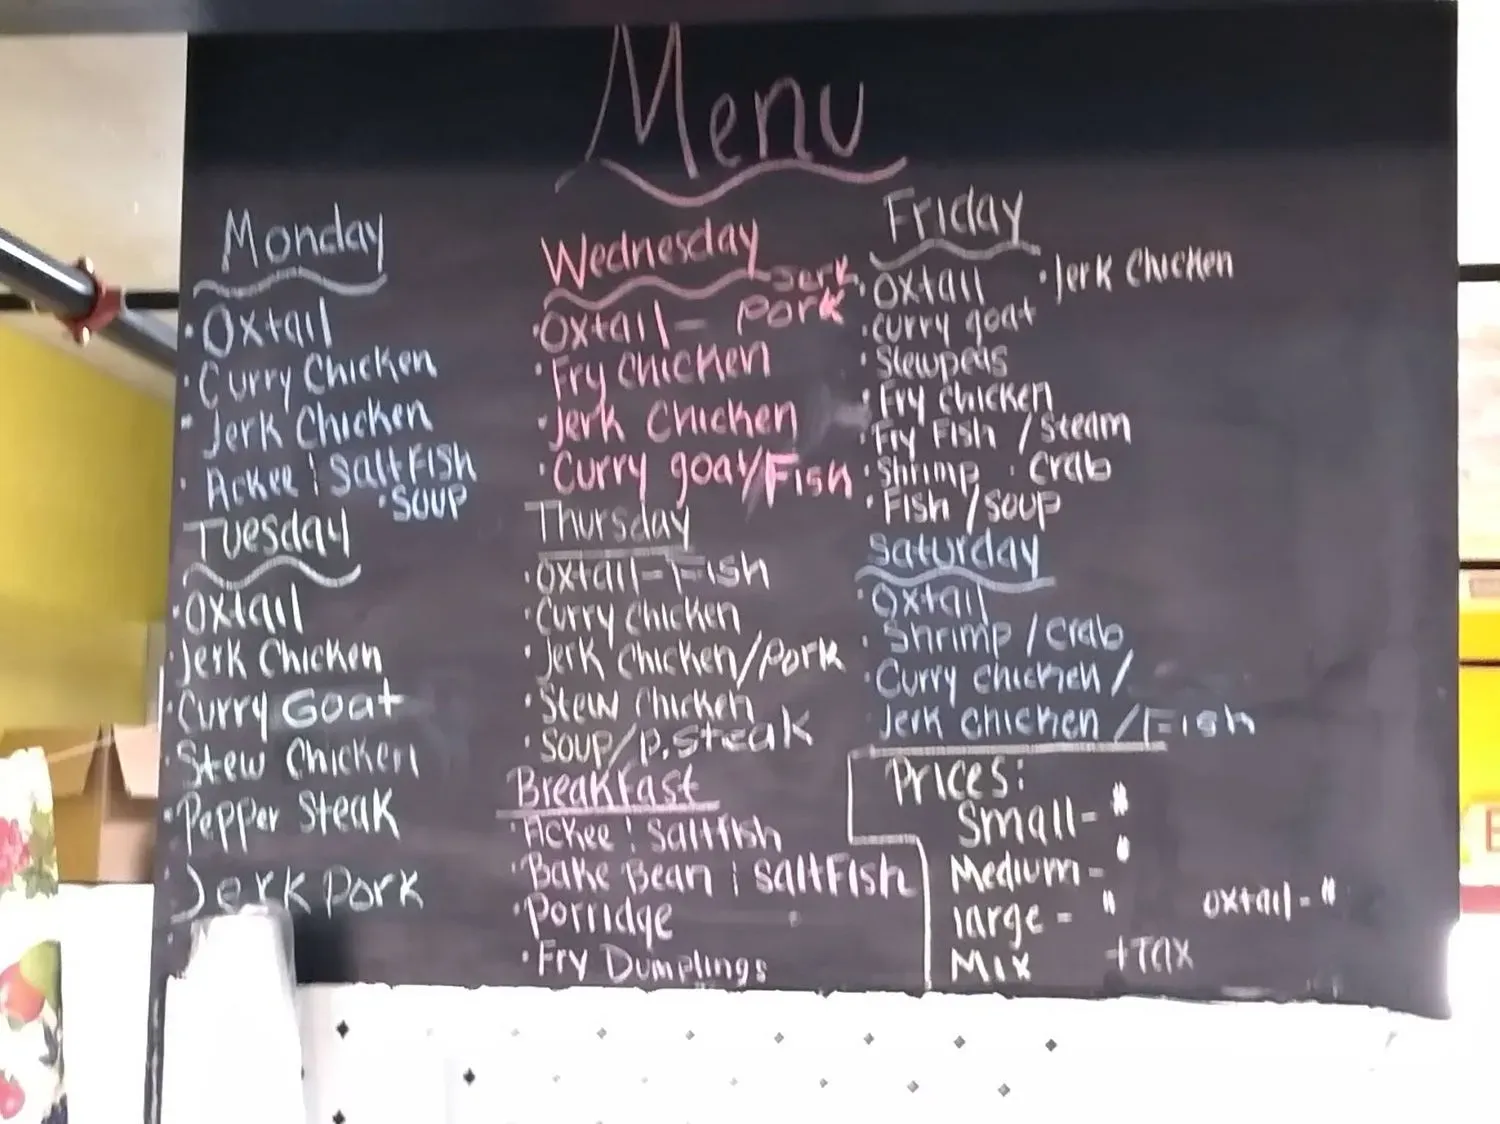 Menu
Monday
• Oxtail
• Curry Chicken
• Jerk Chicken
• Ackee ¦ SaltFish
• Soup
Tuesday
• Oxtail
• Jerk Chicken
• Curry Goat
• Stew Chicken
• Pepper Steak
Jerk Pork
Wednesday
• Oxtail - Jerk Pork
• Fry Chicken
• Jerk Chicken
• Curry goat/Fish
Thursday
• Oxtail - Fish
• Curry Chicken
• Jerk Chicken/Pork
• Stew Chicken
• Soup/P.Steak
Breakfast
• Ackee ¦ Saltfish
• Bake Bean ¦ SaltFish
• Porridge
• Fry Dumplings
Friday
• Oxtail • Jerk Chicken
• Curry goat
• Stewpeas
• Fry Chicken
• Fry Fish / Steam
• Shrimp • Crab
• Fish / Soup
Saturday
• Oxtail
• Shrimp / Crab
• Curry Chicken /
Jerk Chicken / Fish
Prices:
Small-
Medium-
large -
oxtail -
Mix +Tax